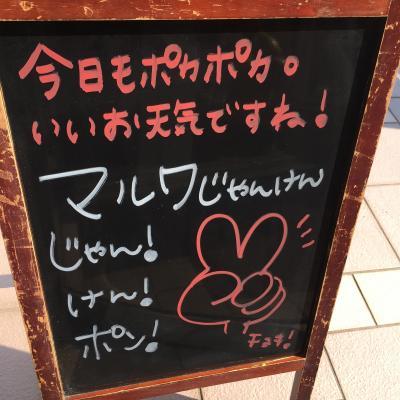 今日もポカポカ。
いいお天気ですね!
マルワじゃんけん
じゃん!
けん!
ポン!
チョキ!